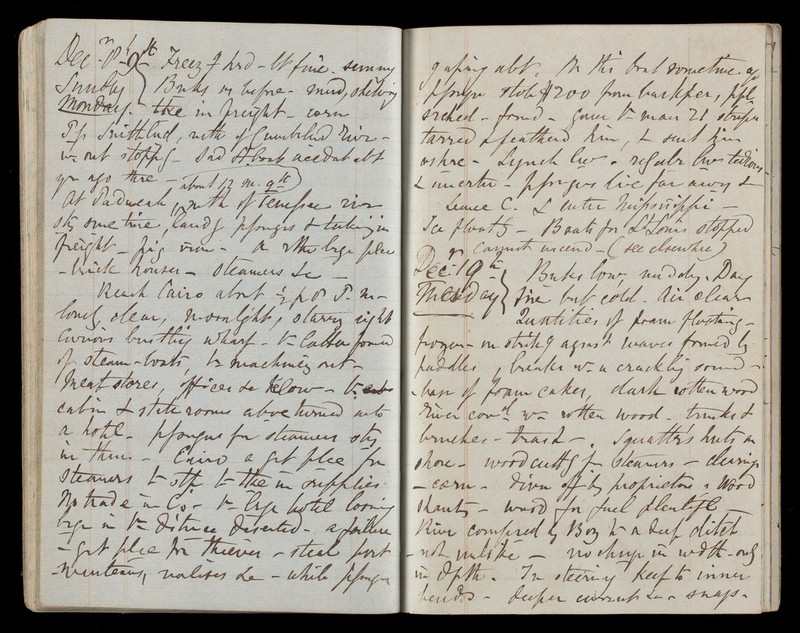 Decr 18th Freezg hrd - bt fine - sunny
Sunday Banks as before - mud, shelving
Monday - take in freight - corn
Ps Smithlnd, mth of Cumberlnd River -
wout stoppg - Sad St boat accdnt abt
yr ago there - about 12 m. 9th
At Paducah, mth of Tennessee river
sty some time, landg pssngrs & taking in
freight - pig iron - A rthr large place
- brick houses - steamers &c -
Reach Cairo about ½ p 8 P.M -
lovely clear, moonlght, starry night
Curious bustling wharf -
of steam-boats, machinery out -
Meat stores, offices &c below -
cabin & state rooms above turned into
a hotel - pssngrs for steamers sty
in them - Cairo a grt plce for
steamers to stp to tke in supplies
No trade in Co - lrge hotel looming
lrge in distnce deserted - a failure
- grt plce for thieves - steal port
-manteaus, valises &c - while pssngrs
gaping abt. On this boat sometime ago
pssngr stole $200 from barkeeper,
srched - found - gave man 21 stripes
tarred & feathered him, & sent him
ashore - Lynch law - regular laws tedious
& uncertn - pssngrs live far away &
Leave C. & enter Mississippi -
Ice floatg - Boats for St Louis stopped
cannot ascend - (see elsewhere)
Decr 19th Banks low, muddy. Day
Tuesday fine but cold. Air clear
Quntities of foam floating -
frozen - on strikg agnst waves formed by
paddles, breaks w. a crackling sound -
- base of foam cakes, dark rotten wood
River covd w. rotten wood - trunks &
branches - Squatters huts on
shore - woodcuttg f steamers - clearings
- corn - drivn off by proprietors. Wood
- wood for fuel plentifl
River compared by Boy to a deep ditch
- not unlike - no chnge in wdth - only
in dpth. In steering keep to inner
bends - deeper current &c - snags -